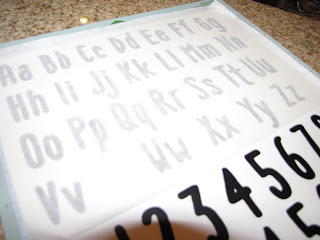 Aa Bb Cc Dd Ee Ff Gg
Hh Ii Jj Kk Ll Mm Nn
Oo Pp Qq Rr Ss Tt Uu
Vv Ww Xx Yy Zz
12345678